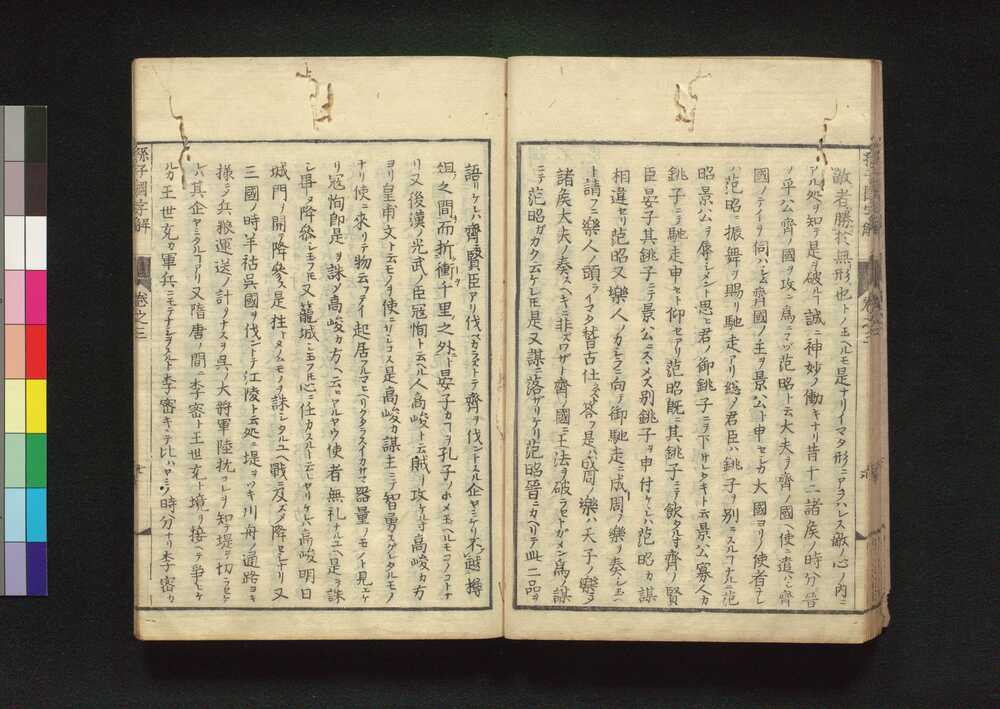 敵者勝於無形也トノ玉ヘルモ是ナリイマタ形ニアラハレス敵ノ心ノ内ニ
アル処ヲ知テ是ヲ破ルヿ誠ニ神妙ノ働キナリ昔十二諸矦ノ時分晉
ノ平公齊ノ國ヲ攻ン為ニマヅ范昭ト云大夫ヲ齊ノ國ヘ使ニ遣ハシ齊
國ノテイヲ伺ハシム齊國ノ主ヲ景公ト申セシカ大國ヨリノ使者ナレ
ハ范昭ニ振舞ヲ賜リ馳走アリ総ノ君臣ハ銚子ヲ別ニスルヿナルニ范
昭景公ヲ辱シメント思ヒ君ノ御銚子ニテ下サレタキト云景公寡人カ
銚子ニテ馳走申セト仰セアリ范昭既ニ其銚子ニテ飲タル寸齊ノ賢
臣晏子其銚子ニテ景公ニスヽメズ別銚子ヲ申付ケレハ范昭カ謀
相違セリ范昭又樂人ノカタヘニ向テ御馳走ニ成周ノ樂ヲ奏シ玉ヘ
ト請フニ樂人ノ頭ライマタ稽古仕ラスト答フ是ハ成周ノ樂ハ天子ノ樂ヲ
諸矦大夫ノ奏スヘキニ非ズワザト齊ノ國ニ王法ヲ破ラセトガメン為ノ謀
ニテ范昭ガカク云ケレ𪜈是又謀ニ落ザリケリ范昭晉ニカヘリテ此二品ヲ
語リケレハ齊ニ賢臣アリ伐ヘカラストテ齊ヲ伐ントスル企ヤミケリ不越樽
俎之間而折衝千里之外ト晏子カヿヲ孔子ノホメ玉ヘルモコノコトナ
リ又後漢ノ光武ノ臣寇恂ト云ヘル人高峻ト云賊ヲ攻ケル寸高峻カ方
ヨリ皇甫文ト云モノヲ使ニヲコス是高峻カ謀主ニテ智勇スグレタルモノ
ナリ使ニ來リテ物云フテイ起居フルマヒヘリクタラスイカサマ器量ノモノト見エケ
リ寇恂即是ヲ誅シ高峻カ方ヘ云ヒヤルヤウ使者無礼ナルユヘ是ヲ誅
シ畢ヌ降參シ玉フモ又籠城シ玉フモ心ニ任カスルト云ヒヤリケレハ高峻明日
城門ヲ開テ降參ス是柱トタノムモノヲ誅シタルユヘ戰ニ及ハズ降セシナリ又
三國ノ時羊祜呉國ヲ伐ントテ江陵ト云処ニ堤ヲツキ川舟ノ通路ヨキ
様ニシ兵粮運送ノ計リヲナス呉ノ大將軍陸抗コレヲ知テ堤ヲ切ラセケレ
ハ其企ヤミタルヿアリ又隋唐ノ間ニ李密ト王世充ト境ヲ接ヘテ爭ヒケ
ルカ王世充カ軍兵ニモテナシヲスルト李密キヽテ比ハヤミノ時分ナリ李密カ
孫子國字解
卷之三